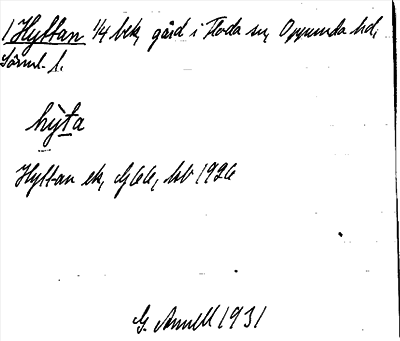 1 Hyttan 1/4 bek, gård i Floda sn, Oppunda hd,
Sörml. l.
hỳta
Hyttan ek, G66, hb 1926
G. Annell 1931